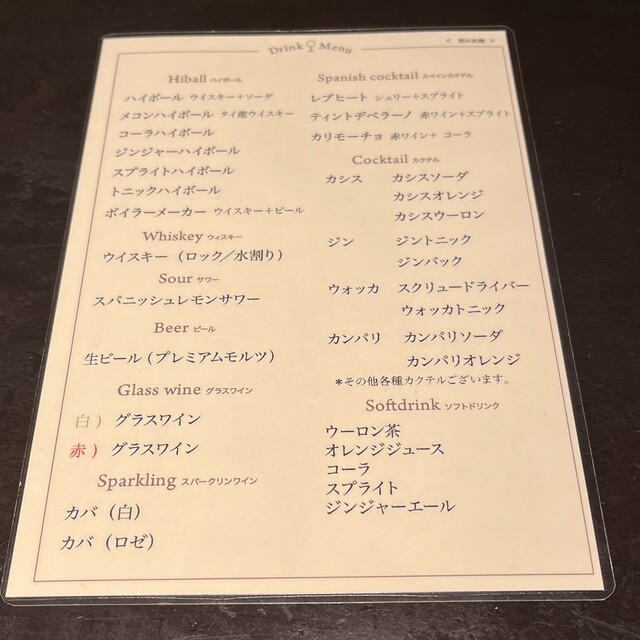 Drink Menu
＜ 飲み放題 ＞
Hiball ハイボール
ハイボール ウイスキー＋ソーダ
メコンハイボール タイ産ウイスキー
コーラハイボール
ジンジャーハイボール
スプライトハイボール
トニックハイボール
ボイラーメーカー ウイスキー＋ビール
Whiskey ウィスキー
ウイスキー（ロック／水割り）
Sour サワー
スパニッシュレモンサワー
Beer ビール
生ビール（プレミアムモルツ）
Glass wine グラスワイン
白） グラスワイン
赤） グラスワイン
Sparkling スパークリンワイン
カバ（白）
カバ（ロゼ）
Spanish cocktail スペインカクテル
レブヒート シェリー＋スプライト
ティントデベラーノ 赤ワイン＋スプライト
カリモーチョ 赤ワイン＋ コーラ
Cocktail カクテル
カシス カシスソーダ
カシスオレンジ
カシスウーロン
ジン ジントニック
ジンバック
ウォッカ スクリュードライバー
ウォッカトニック
カンパリ カンパリソーダ
カンパリオレンジ
＊その他各種カクテルございます。
Softdrink ソフトドリンク
ウーロン茶
オレンジジュース
コーラ
スプライト
ジンジャーエール